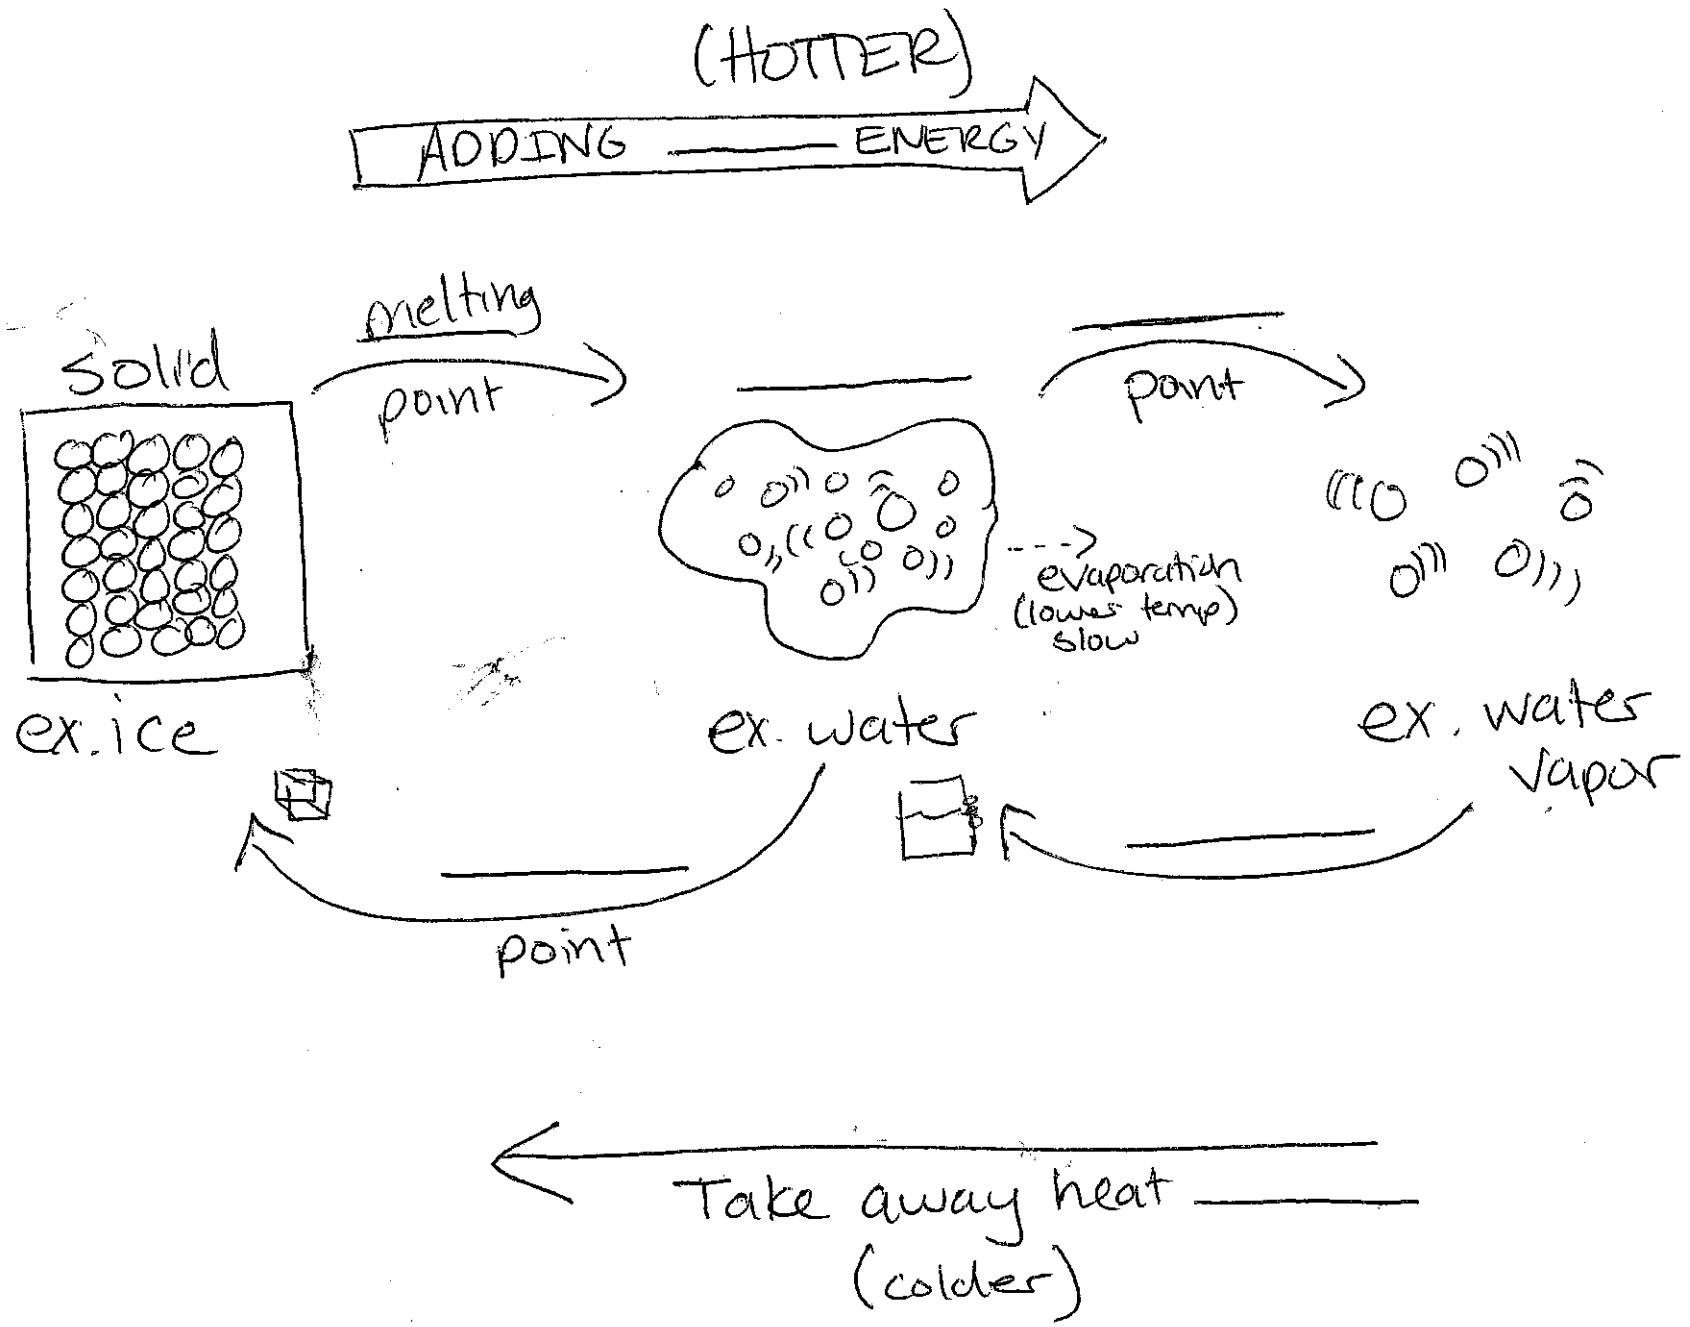 (HOTTER)
ADDING ____ ENERGY
melting
point
solid
point
evaporation
(lower temp)
slow
ex. ice
ex. water
ex. water
vapor
point
Take away heat ____
(colder)